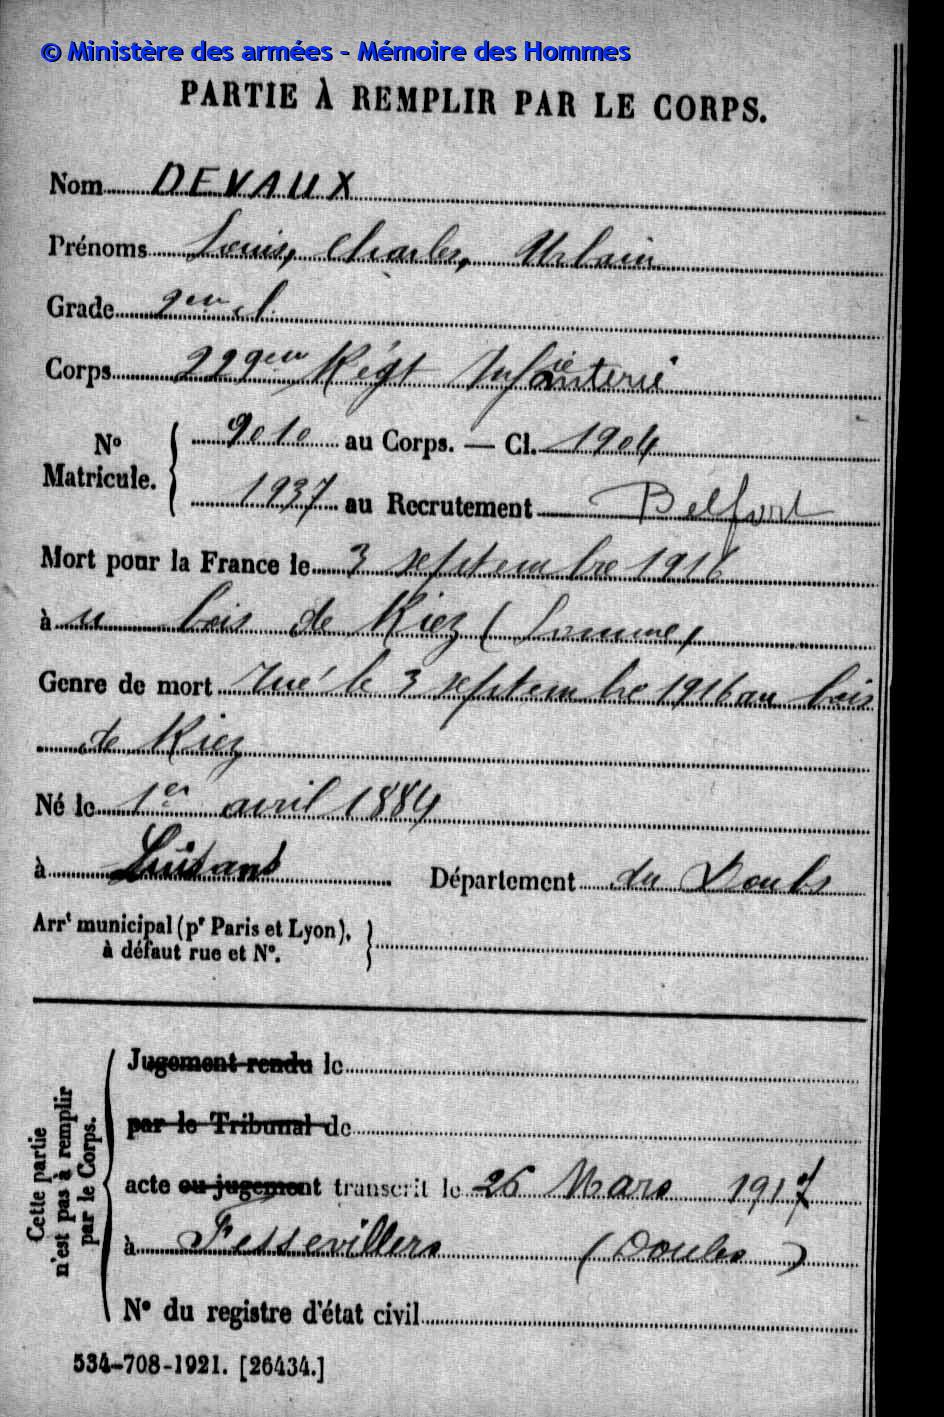 © Ministère des armées - Mémoire des Hommes
PARTIE À REMPLIR PAR LE CORPS.
Nom DEVAUX
Prénoms Louis, Charles, Urbain
Grade 2em cl.
Corps 229em Régt Infanterie
No Matricule. { 9010 au Corps. — Cl. 1904
1937 au Recrutement Belfort
Mort pour la France le 3 septembre 1916
à u bois de Riez (Somme)
Genre de mort Tué le 3 septembre 1916 au bois
de Riez
Né le 1er avril 1884
à Département du Doubs
Arrt municipal (pr Paris et Lyon), }
à défaut rue et No.
Cette partie n'est pas à remplir par le Corps.
Jugement rendu le
par le Tribunal de
acte ou jugement transcrit le 26 Mars 1917
à Fessevillers (Doubs)
No du registre d'état civil
534-708-1921. [26434.]